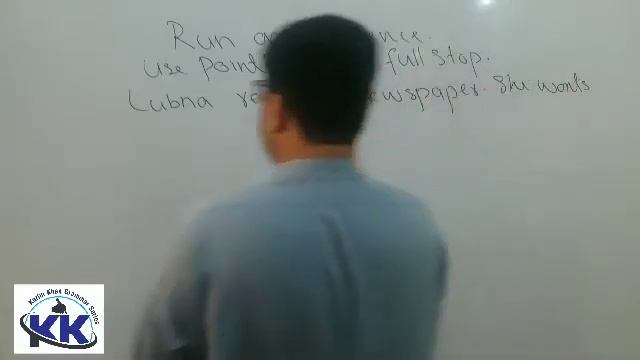 Run
use point full stop.
Lubna newspaper. She wants
Karim Khan Grammar Series
KK